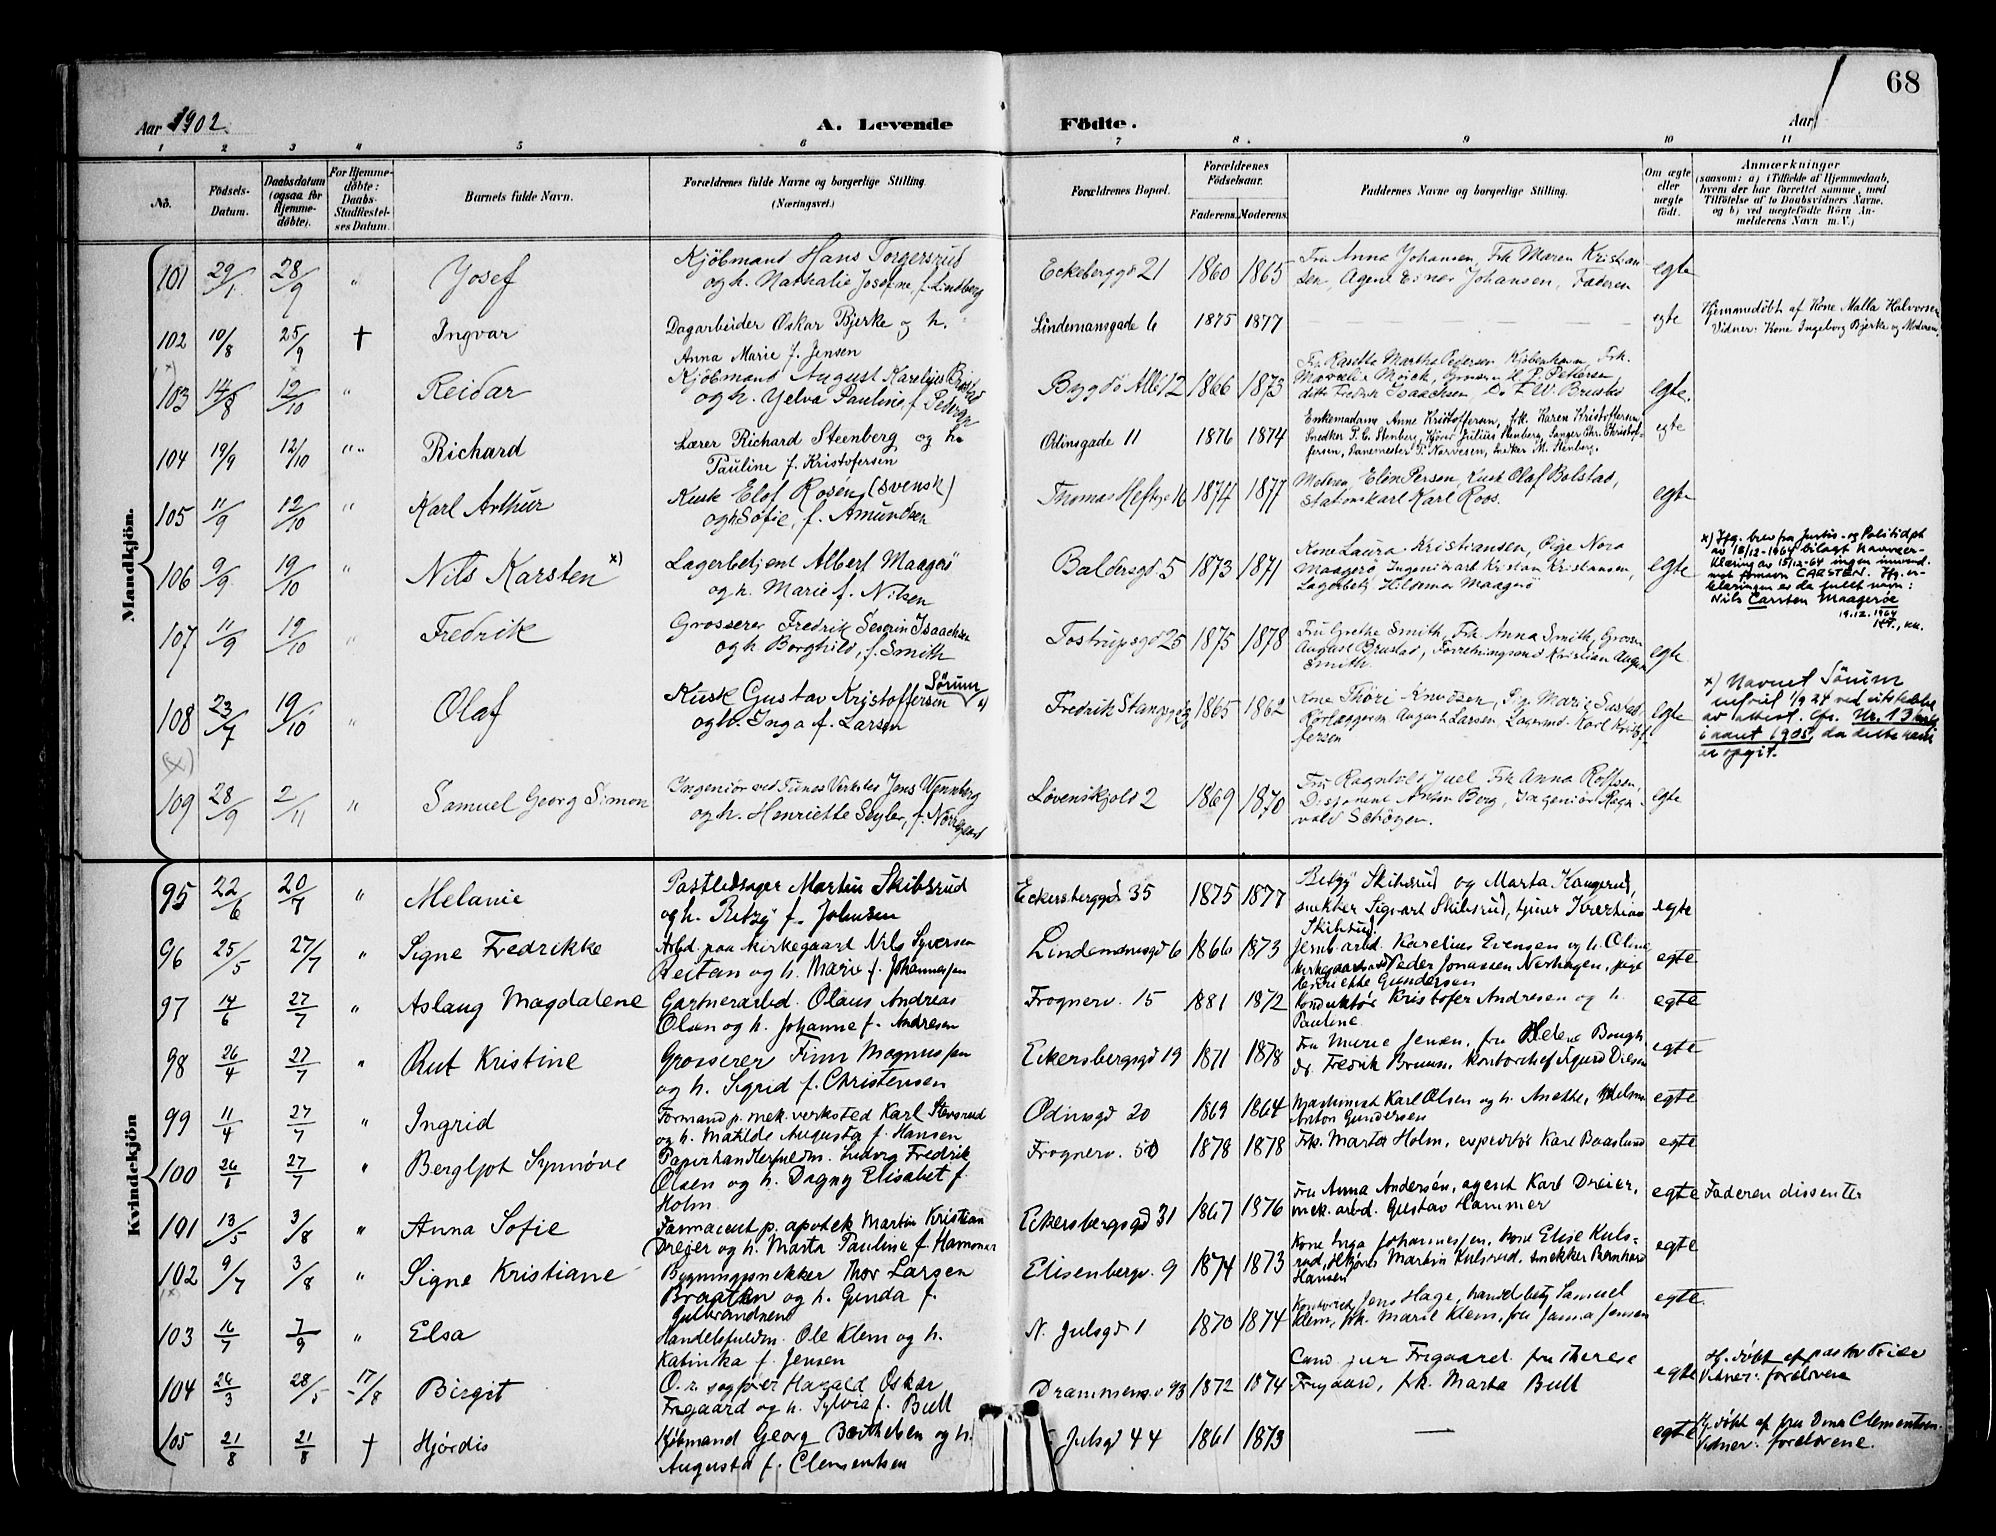 68
Aar 1902.
A. Levende Födte.
Aar
1 2 3 4 5 6 7 8. 9 10 11
No. Födsels-Datum. Daabsdatum (ogsaa for Hjemmedöbte). For Hjemmedöbte: Daabs-Stadfæstelses Datum. Barnets fulde Navn. Forældrenes fulde Navne og borgerlige Stilling. (Næringsvei.) Forældrenes Bopæl. Forældrenes Födselsaar. Faderens. Moderens. Faddernes Navne og borgerlige Stilling. Om ægte eller uægte födt. Anmærkninger
(saasom: a) i Tilfælde af Hjemmedaab, hvem der har forrettet samme, med Tilföielse af to Daabsvidners Navne. og b) ved uægtefödte Börn Anmelderens Navn m. V.)
Mandkjön.
101 29/1 28/9 " Josef Kjöbmand Hans Torgersrud
og h. Nathalie Josefine f. Lindberg Eckeberggd 21 1860 1865 Fru Anna Johansen, Frk Maren Kristian
sen, Agent Einar Johansen, Faderen egte
102 10/8 25/9 † Ingvar Dagarbeider Oskar Bjerke og h.
Anna Marie f. Jensen Lindemansgade 6 1875 1877 — egte Hjemmedöbt af Kone Malla Halvorsen
Vidner: Kone Ingeborg Bjerke og Moderen.
103 14/8 12/10 " Reidar Kjöbmand August Karelius Brustad
og h. Yelva Pauline f. Pedersen Bygdö Allé 12 1866 1873 Fru Kasette Martha Pedersen Kjöbenhavn, Frk.
H. P. Pettersen,
ditto Fredrik Isaachsen, Do F. W. Brustad egte.
104 19/9 12/10 " Richard Lærer Richard Steenberg og h.
Pauline f. Kristofersen Odinsgade 11 1876 1874 Enkemadame Anne Kristoffersen, frk. Karen Kristoffersen,
Snedker P. C. Stenberg, Kjörer Julius Stenberg, Sanger Chr. Christof-
fersen, Banemester P. Narvesen, Snedker M. Stenberg. egte
105 11/9 12/10 " Karl Arthur Kusk Elof Rosén, (svensk)
og h Sofie, f. Amundsen Thomas Heftye 16 1874 1877 Moderen, Elin Person, Kusk Olaf Bolstad,
Stationskarl Karl Roos. egte
106 9/9 19/10 " Nils Karsten x) Lagerbetjent Albert Maagerö
og h. Marie f. Nilsen Baldersgd 5 1873 1871 Kone Laura Kristiansen, Pige Nora
Maagerö Ingeniörass Kristian Kristiansen,
Lagerbetj. Hildemar Maagerö egte x) Ifg. brev fra Justis- og Politidpt
av 18/12-1964 bilagt navneer-
klæring av 15/12-64 ingen innvend.
mot fornavn CARSTEN. Ifg. er-
klæringen er da fullt navn:
Nils Carsten Maagerøe
19.12.1964
107 11/9 19/10 " Fredrik Grosserer Fredrik Severin Isaachsen
og h Borghild, f. Smith Tostrupsgd 25 1875 1878 Fru Grethe Smith, Frk. Anna Smith, Grosser
August Brustad, Forretningsmd Kristian August
Smith egte
108 23/7 19/10 " Olaf Kusk Gustav Kristoffersen Sörum x)
og h. Inga f. Larsen Fredrik Stangsgd 1865 1862 Kone Thöri Knudsen, Pig. Marie
August Larsen, Lagermd. Karl Kristof-
fersen egte x) Navnet Sörum
indfört 1/9 24 ved utstedelse
av attest. Cfr. Nr. 13
i aaret 1905, da dette navn
er opgit.
(x)
109 28/9 2/11 " Samuel Georg Simon Ingeniör ved Tunes Verksted Jens Wennberg
og h. Henriette Seyler, f. Nörregaard Lövenskjold 2 1869 1870 Fru Ragnhild Juel, Frk Anna Rolfsen,
Disponent Anton Berg, Ingeniör Ragn-
vald Schögen. egte
Kvindekjön
95 22/6 20/7 " Melanie Postledsager Martin Skibsrud
og h. Betzy f. Johnsen Eckersberggd 35 1875 1877 Betzy Skibsrud og Marta Haugerud,
snekker Sigvart Skibsrud, tjener Kristian
Skibsrud. egte
96 25/5 27/7 " Signe Fredrikke Arbd. paa kirkegaard Nils Syversen
Reitan og h. Marie f. Johannessen Lindemansgd 6 1866 1873 Jernb. arbd. Karelius Evensen og h. Oline,
kirkegaardsarbd Peder Jonassen Nerhagen, pige
Henriette Gundersen egte
97 14/6 27/7 " Aslaug Magdalene Gartnerarbd. Olaus Andreas
Olsen og h. Johanne f. Andresen Frognerv. 15 1881 1872 Konduktör Kristofer Andresen og h.
Pauline egte
98 26/4 27/7 " Rut Kristine Grosserer Finn Magnussen
og h. Sigrid f. Christensen Eckersbergsgd 19 1871 1878 Fru Marie Jensen, fru Helene Baugh,
dr. Fredrik Bruun, kontorchef Sigurd egte
99 11/4 27/7 " Ingrid Formand p. mek. verksted Karl Stensrud
og h. Matilde Augusta f. Hansen Odinsgd 20 1869 1864 Maskinist Karl Olsen og h. Anette,
Anton Gundersen egte
100 26/6 27/7 " Bergljot Synnöve Papirhandlerfuldm. Ludvig Fredrik
Olsen og h. Dagny Elisabet f.
Holm Frognerv. 50 1878 1878 Frk. Marta Holm, expeditör Karl Baaslund egte
101 13/5 3/8 " Anna Sofie Farmaceut p. apotek Martin Kristian
Dreier og h. Marta Pauline f. Hammer Eckersbergsgd 31 1867 1876 Fru Anna Andersén, agent Karl Dreier,
mek. arbd. Gustav Hammer egte Faderen dissenter
102 9/7 3/8 " Signe Kristiane Bygningssnekker Thor Larsen
Braaten og h. Gunda f.
Gulbrandsen Elisenbergv. 9 1874 1873 Kone Inga Johannessen, kone Elise Kuls-
rud, Martin Kulsrud, snekker Bernhard
Hansen egte
103 16/7 7/9 " Elsa Handelsfuldm. Ole Klem og h.
Katinka f. Jensen N. Julsgd 1 1870 1874 Kontorist Jens Hage, handelsbetj Samuel
Klem, frk. Marie Klem, fru Janna Jensen egte.
104 26/3 28/5 17/8 Birgit O.r. sagförer Harald Oskar
Frigaard og h. Sylvia f. Bull Drammensv 93 1872 1874 Cand jur Frigaard fru Therese
Frigaard, frk. Marta Bull egte Hj. döbt af pastor
Vidner: foreldrene
105 21/8 21/8 † Hjördis Kjöbmand Georg Berthelsen og h.
Augusta f. Clementsen Julsgd 44 1861 1873 — egte Hj döbt af fru Clementsen.
Vidner: foreldrene.